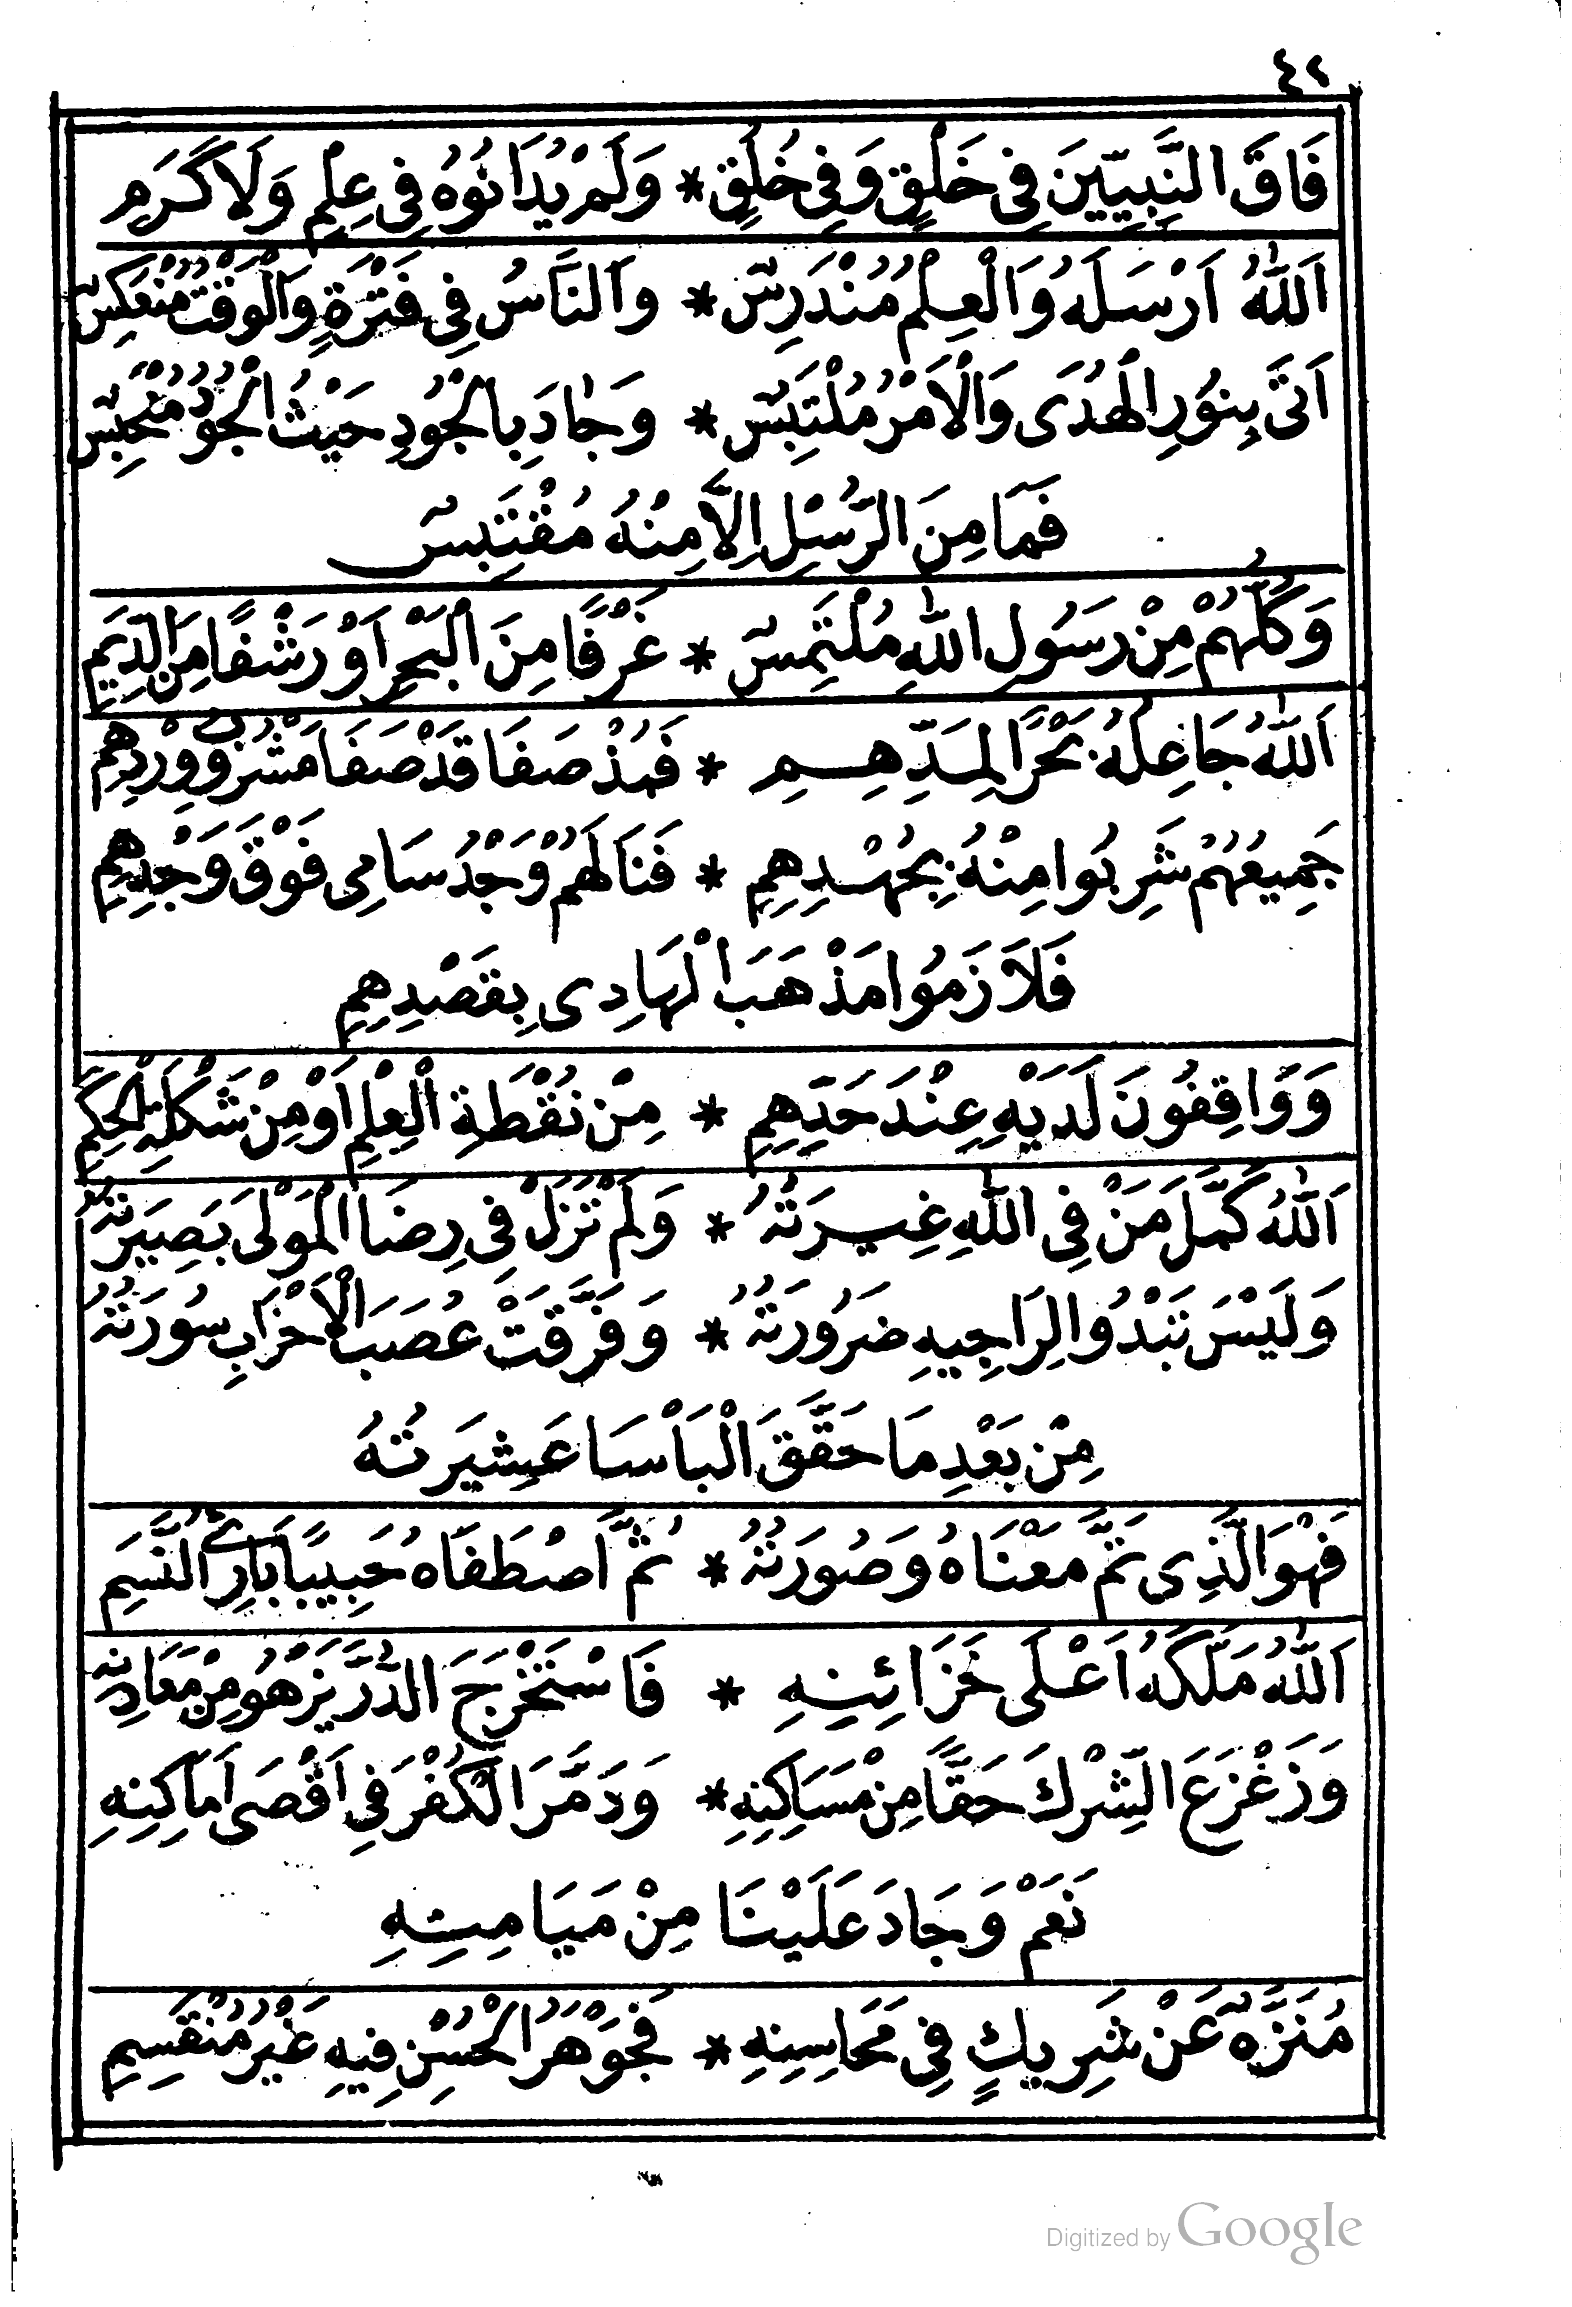 ٤٢
فَاقَ النَّبِيِّينَ فِى خَلْقٍ وَفِى خُلُقٍ * وَلَمْ يُدَانُوهُ فِى عِلْمٍ وَلَا كَرَمِ
اَللّٰهُ اَرْسَلَهُ وَالْعِلْمُ مُنْدَرِسٌ * وَالنَّاسُ فِى فَتْرَةٍ وَالْوَقْتُ مُنْعَكِسٌ
اَتَى بِنُورِ الْهُدَى وَالْاَمْرُ مُلْتَبِسٌ * وَجَادَ بِالْجُودِ حَيْثُ الْجُوْدُ مُنْحَبِسٌ
فَمَا مِنَ الرُّسْلِ اِلَّا مِنْهُ مُقْتَبِسٌ
وَكُلُّهُمْ مِنْ رَسُولِ اللّٰهِ مُلْتَمِسٌ * غَرْفًا مِنَ الْبَحْرِ اَوْ رَشْفًا مِنَ الدِّيَمِ
اَللّٰهُ جَاعِلُهُ بَحْرًا لِمَدِّهِمِ * فَمُذْ صَفَا قَدْ صَفَا مَشْرُوْبُ وِرْدِهِمِ
جَمِيعُهُمْ شَرِبُوا مِنْهُ بِجُهْدِهِمِ * فَنَالَهُمْ وَجْدُ سَامِى فَوْقَ وَجْدِهِمِ
فَلَازَمُوا مَذْهَبَ الْهَادِى بِقَصْدِهِمِ
وَوَاقِفُونَ لَدَيْهِ عِنْدَ حَدِّهِمِ * مِنْ نُقْطَةِ الْعِلْمِ اَوْ مِنْ شَكْلَةِ الْحِكَمِ
اَللّٰهُ كَمَّلَ مَنْ فِى اللّٰهِ غِيرَتُهُ * وَلَمْ تَزَلْ فِى رِضَا الْمَوْلَى بَصِيَرتُهُ
وَلَيْسَ تَبْدُوا لِرَاجِيهِ ضَرُورَتُهُ * وَفَرَّقَتْ عُصَبَ الْاَحْزَابِ سُورَتُهُ
مِنْ بَعْدِ مَا حَقَّقَ الْبَاْسَا عَشِيرَتُهُ
فَهْوَ الَّذِى تَمَّ مَعْنَاهُ وَصُورَتُهُ * ثُمَّ اصْطَفَاهُ حَبِيبًا بَارِئُ النَّسَمِ
اَللّٰهُ مَلَّكَهُ اَعْلَى خَزَائِنِهِ * فَاسْتَخْرَجَ الدُّرَّ يَزْهُو مِنْ مَعَادِنِهِ
وَزَعْزَعَ الشِّرْكَ حَقًّا مِنْ مَسَاكِنِهِ * وَدَمَّرَ الْكُفْرَ فِى اَقْصَى اَمَاكِنِهِ
نَعَمْ وَجَادَ عَلَيْنَا مِنْ مَيَامِنِهِ
مُنَزَّهٌ عَنْ شَرِيكٍ فِى مَحَاسِنِهِ * فَجَوْهَرُ الْحُسْنِ فِيهِ غَيْرُ مُنْقَسِمِ
Digitized by Google